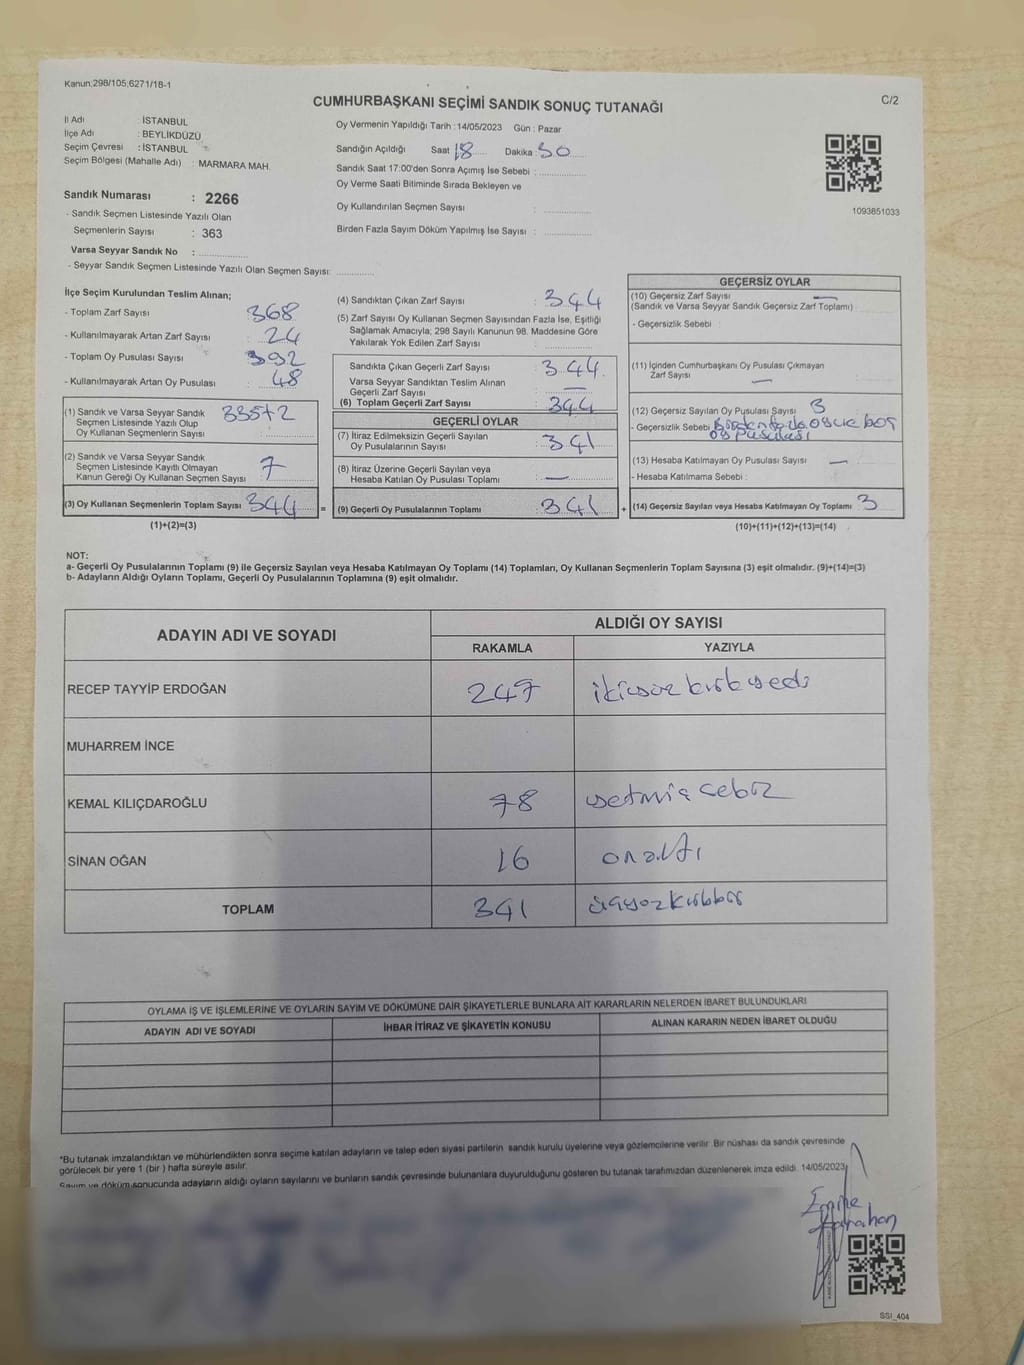 Kanun;298/105,6271/18-1
CUMHURBAŞKANI SEÇİMİ SANDIK SONUÇ TUTANAĞI
C/2
İl Adı : İSTANBUL
İlçe Adı : BEYLİKDÜZÜ
Seçim Çevresi : İSTANBUL
Seçim Bölgesi (Mahalle Adı) : MARMARA MAH.
Sandık Numarası : 2266
- Sandık Seçmen Listesinde Yazılı Olan
Seçmenlerin Sayısı : 363
Varsa Seyyar Sandık No :
- Seyyar Sandık Seçmen Listesinde Yazılı Olan Seçmen Sayısı:
Oy Vermenin Yapıldığı Tarih :14/05/2023 Gün : Pazar
Sandığın Açıldığı Saat 18 Dakika : 30
Sandık Saat 17:00'den Sonra Açımış İse Sebebi :
Oy Verme Saati Bitiminde Sırada Bekleyen ve
Oy Kullandırılan Seçmen Sayısı :
Birden Fazla Sayım Döküm Yapılmış İse Sayısı :
1093851033
İlçe Seçim Kurulundan Teslim Alınan;
- Toplam Zarf Sayısı : 368
- Kullanılmayarak Artan Zarf Sayısı : 24
- Toplam Oy Pusulası Sayısı : 392
- Kullanılmayarak Artan Oy Pusulası : 48
(1) Sandık ve Varsa Seyyar Sandık 335+2
Seçmen Listesinde Yazılı Olup
Oy Kullanan Seçmenlerin Sayısı :
(2) Sandık ve Varsa Seyyar Sandık
Seçmen Listesinde Kayıtlı Olmayan
Kanun Gereği Oy Kullanan Seçmen Sayısı : 7
(3) Oy Kullanan Seçmenlerin Toplam Sayısı : 344 =
(1)+(2)=(3)
(4) Sandıktan Çıkan Zarf Sayısı : 344
(5) Zarf Sayısı Oy Kullanan Seçmen Sayısından Fazla İse, Eşitliği
Sağlamak Amacıyla; 298 Sayılı Kanunun 98. Maddesine Göre
Yakılarak Yok Edilen Zarf Sayısı :
Sandıkta Çıkan Geçerli Zarf Sayısı : 344
Varsa Seyyar Sandıktan Teslim Alınan
Geçerli Zarf Sayısı : —
(6) Toplam Geçerli Zarf Sayısı : 344
GEÇERLİ OYLAR
(7) İtiraz Edilmeksizin Geçerli Sayılan
Oy Pusulalarının Sayısı : 341
(8) İtiraz Üzerine Geçerli Sayılan veya
Hesaba Katılan Oy Pusulası Toplamı : —
(9) Geçerli Oy Pusulalarının Toplamı : 341 +
GEÇERSİZ OYLAR
(10) Geçersiz Zarf Sayısı —
(Sandık ve Varsa Seyyar Sandık Geçersiz Zarf Toplamı) :
- Geçersizlik Sebebi :
(11) İçinden Cumhurbaşkanı Oy Pusulası Çıkmayan
Zarf Sayısı : —
(12) Geçersiz Sayılan Oy Pusulası Sayısı : 3
- Geçersizlik Sebebi :
oy pusulası
(13) Hesaba Katılmayan Oy Pusulası Sayısı : —
- Hesaba Katılmama Sebebi :
(14) Geçersiz Sayılan veya Hesaba Katılmayan Oy Toplamı : 3
(10)+(11)+(12)+(13)=(14)
NOT:
a- Geçerli Oy Pusulalarının Toplamı (9) ile Geçersiz Sayılan veya Hesaba Katılmayan Oy Toplamı (14) Toplamları, Oy Kullanan Seçmenlerin Toplam Sayısına (3) eşit olmalıdır. (9)+(14)=(3)
b- Adayların Aldığı Oyların Toplamı, Geçerli Oy Pusulalarının Toplamına (9) eşit olmalıdır.
ADAYIN ADI VE SOYADI
ALDIĞI OY SAYISI
RAKAMLA YAZIYLA
RECEP TAYYİP ERDOĞAN 247 ikiyüz kırk yedi
MUHARREM İNCE
KEMAL KILIÇDAROĞLU 78 yetmiş sekiz
SİNAN OĞAN 16 onaltı
TOPLAM 341 üçyüzkırkbir
OYLAMA İŞ VE İŞLEMLERİNE VE OYLARIN SAYIM VE DÖKÜMÜNE DAİR ŞİKAYETLERLE BUNLARA AİT KARARLARIN NELERDEN İBARET BULUNDUKLARI
ADAYIN ADI VE SOYADI İHBAR İTİRAZ VE ŞİKAYETİN KONUSU ALINAN KARARIN NEDEN İBARET OLDUĞU
*Bu tutanak imzalandıktan ve mühürlendikten sonra seçime katılan adayların ve talep eden siyasi partilerin sandık kurulu üyelerine veya gözlemcilerine verilir. Bir nüshası da sandık çevresinde
görülecek bir yere 1 (bir ) hafta süreyle asılır.
Sayım ve döküm sonucunda adayların aldığı oyların sayılarını ve bunların sandık çevresinde bulunanlara duyurulduğunu gösteren bu tutanak tarafımızdan düzenlenerek imza edildi. 14/05/2023
Emine
Karahan
SSI_404